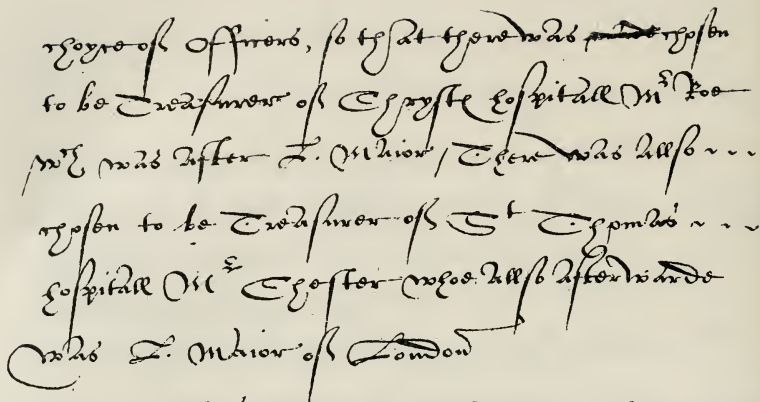 choyce off Officers, so that there was made chosen
to be Treasurer off Chrysts hospitall Mr Roe
wch was after L. Maior, There was allso
chosen to be Treasurer off St Thomas
hospitall Mr Chester whoe allso afterwarde
was L. Maior off London